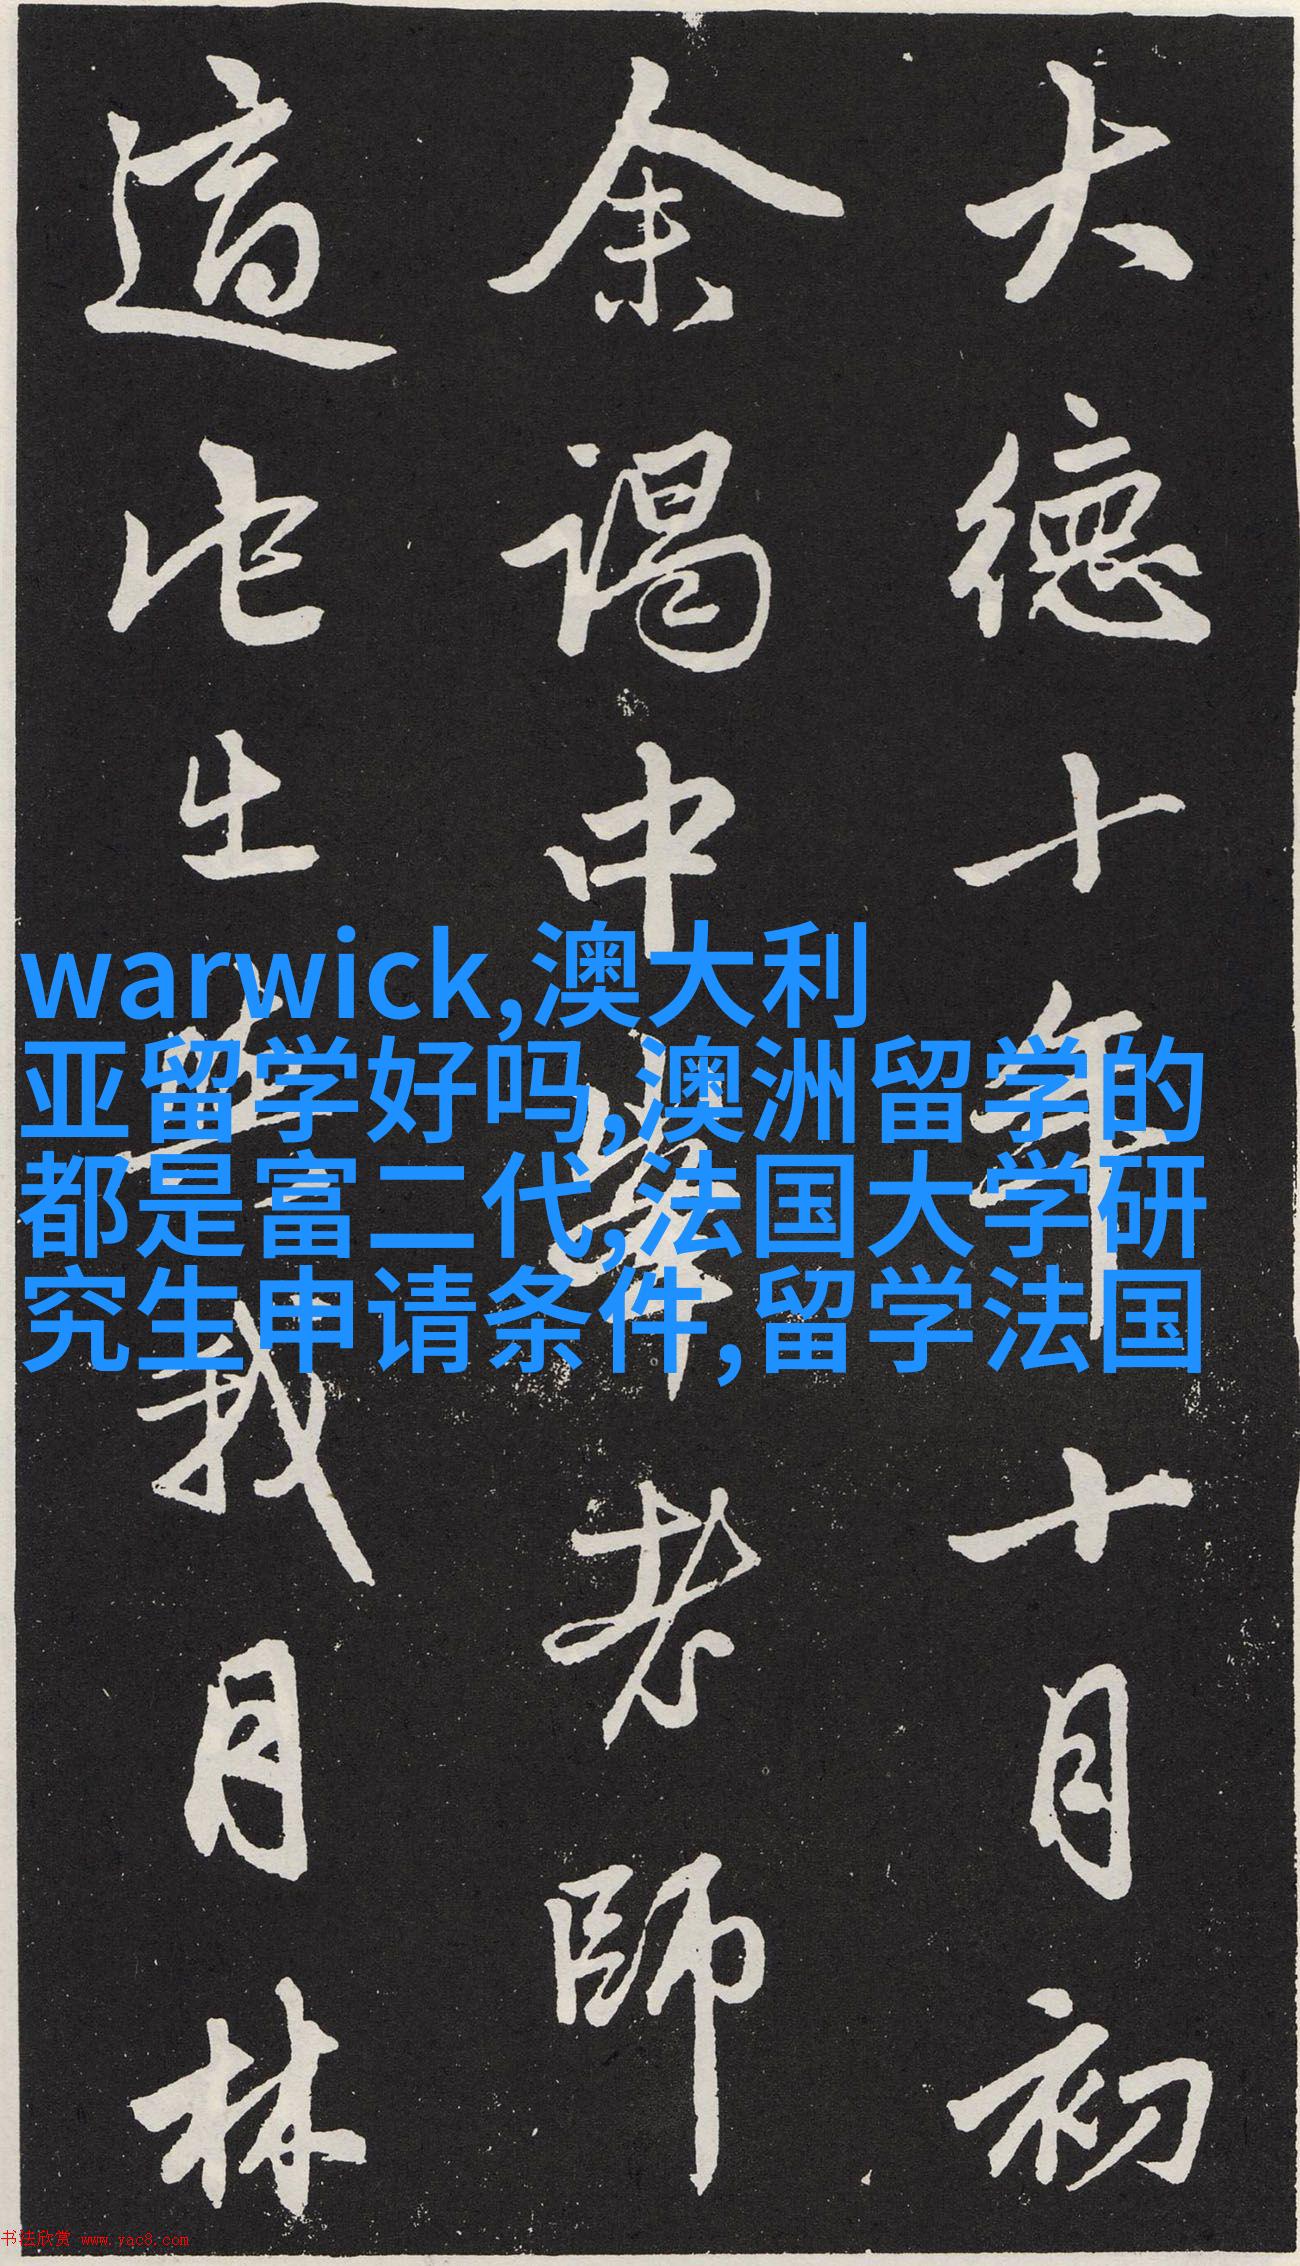 大德十年十月初
余謁中峯老師
適出我月林
warwick,澳大利
亚留学好吗,澳洲留学的
都是富二代,法国大学研
究生申请条件,留学法国
书法欣赏 www.yac8.com